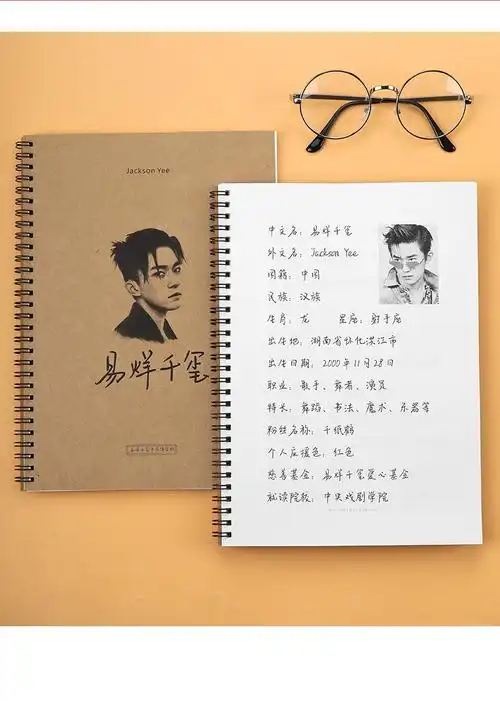 Jackson Yee
易烊千玺
中文名：易烊千玺
外文名：Jackson Yee
国籍：中国
民族：汉族
生肖：龙 星座：射手座
出生地：湖南省怀化洪江市
出生日期：2000年11月28日
职业：歌手、舞者、演员
特长：舞蹈、书法、魔术、乐器等
粉丝名称：千纸鹤
个人应援色：红色
慈善基金：易烊千玺爱心基金
就读院校：中央戏剧学院